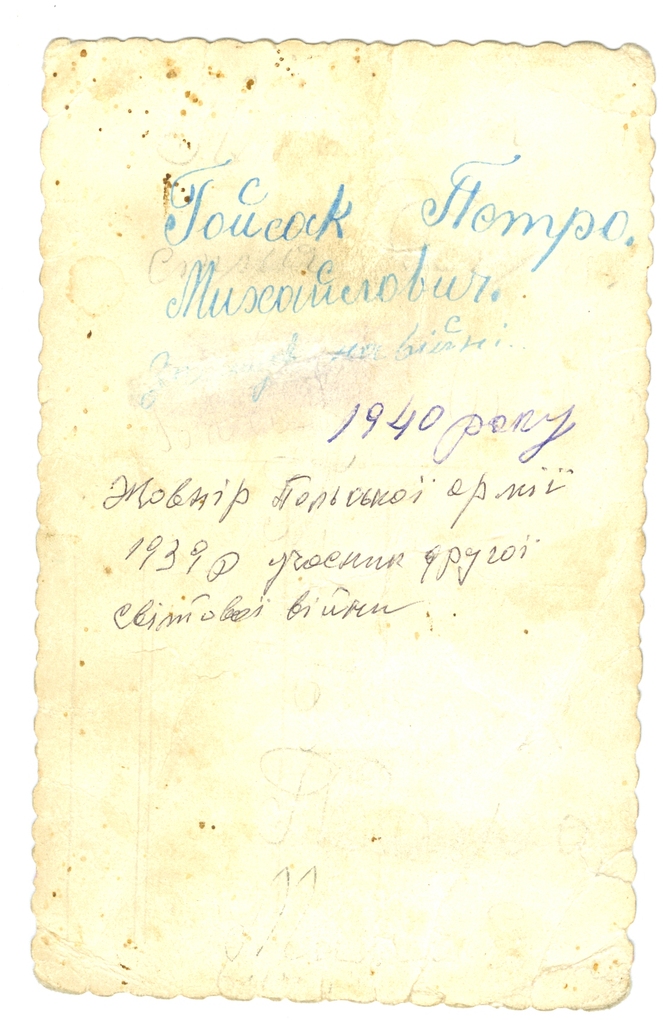 Гойсак Петро.
Михайлович.
на війні.
1940 року
Жовнір Польської армії
1939 р учасник другої
світової війни